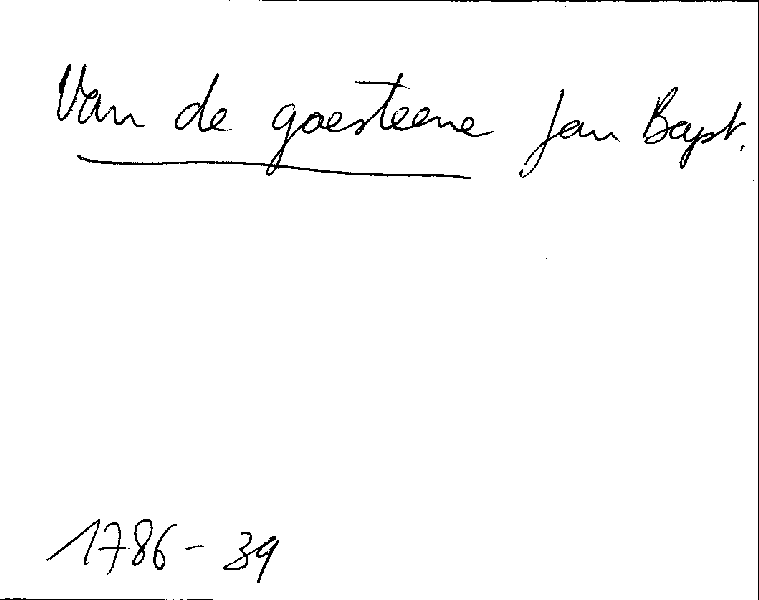 Van de gaesteene Jan Bapt.
1786-39